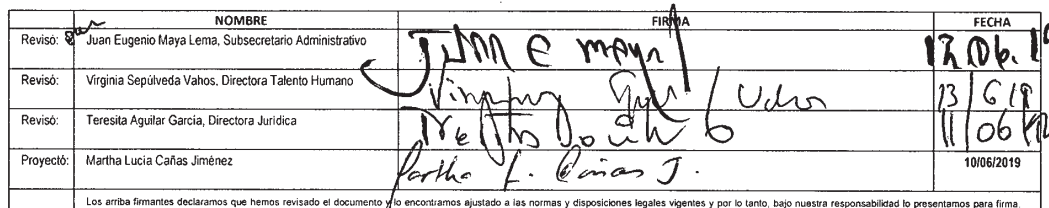 NOMBRE FIRMA FECHA
Revisó: Juan Eugenio Maya Lema, Subsecretario Administrativo Juan E maya
Revisó: Virginia Sepúlveda Vahos, Directora Talento Humano 13/6/19
Revisó: Teresita Aguilar García, Directora Jurídica 11/06/19
Proyectó: Martha Lucía Cañas Jiménez Martha L. Cañas J. 10/06/2019
Los arriba firmantes declaramos que hemos revisado el documento y lo encontramos ajustado a las normas y disposiciones legales vigentes y por lo tanto, bajo nuestra responsabilidad lo presentamos para firma.